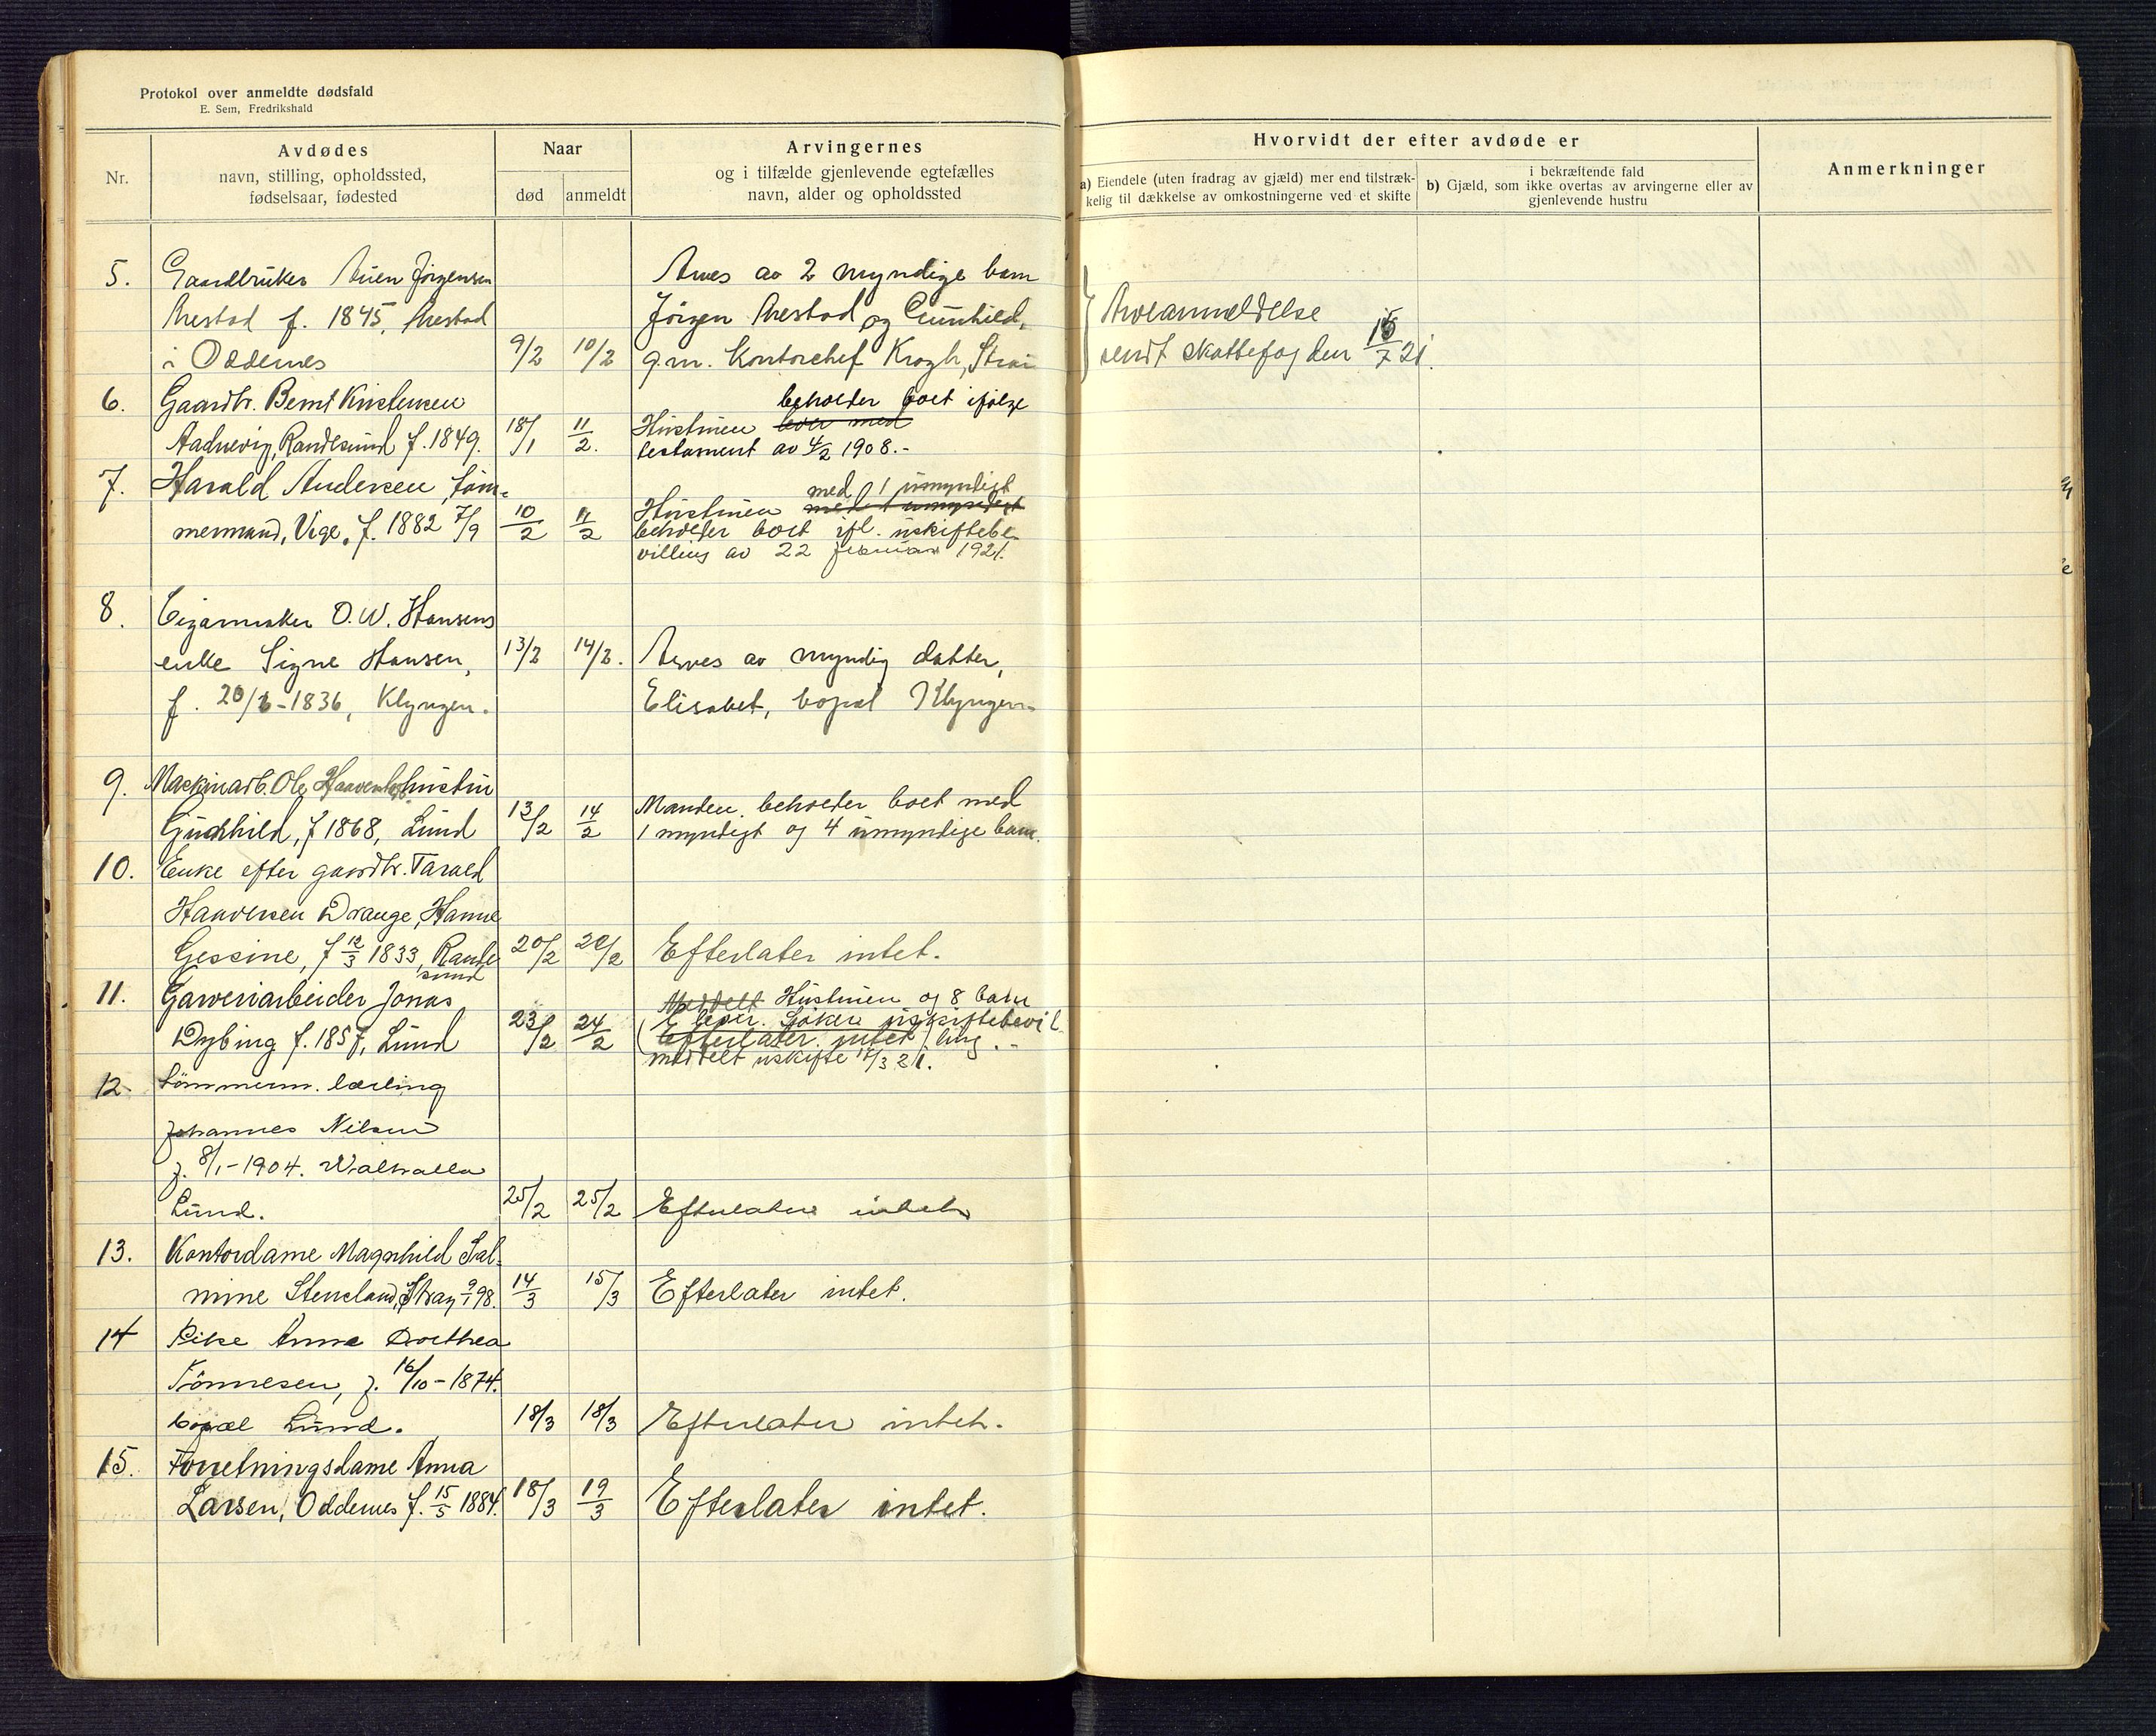 Protokol over anmeldte dødsfald
E. Sem, Fredrikshald
Nr.
Avdødes
navn, stilling, opholdssted,
fødselsaar, fødested
Naar
død
anmeldt
Arvingernes
og i tilfælde gjenlevende egtefælles
navn, alder og opholdssted
Hvorvidt der efter avdøde er
a) Eiendele (uten fradrag av gjæld) mer end tilstræk-
kelig til dækkelse av omkostningerne ved et skifte
i bekræftende fald
b) Gjæld, som ikke overtas av arvingerne eller av
gjenlevende hustru
Anmerkninger
5. Gaardbruker Auen Jörgensen
Arestad f. 1845, Arestad
i Oddernes 9/2 10/2
Arves av 2 myndige barn
Jörgen Arestad og Gunhild,
g.m. Kontorchef Krogh, Strai
Arveanmeldelse
sendt skattefog den 15/7 21.
6. Gaardbr. Bernt Kristensen
Aadnevig, Randesund f. 1849. 18/1 11/2.
beholder boet ifølge
Hustruen lever med
testament av 4/2 1908.-
7. Harald Andersen, töm-
mermand, Vige, f. 1882 7/9 10/2 11/2
med 1 umyndigt
Hustruen med 1 umyndigt
beholder boet ifl. uskiftebe-
villing av 22 februar 1921.
8. Cigarmaker O. W. Hansens
enke Signe Hansen, 13/2 14/2. Arves av myndig datter,
f. 20/6-1836, Klyngen. Elisabet, bopæl Klyngen
9. Maskinarb. Ole hustru
Gudhild, f 1868, Lund 13/2 14/2
Manden beholder boet med
1 myndigt og 4 umyndige barn.
10. Enke efter gaardbr. Tarald
Haaversen Drange, Hanne
Gessine, f 12/3 1833, Rande
sund 20/2 20/2 Efterlater intet.
11. Garveriarbeider Jonas
Dybing f. 1857, Lund 23/2 24/2
Meddelt Hustruen og 8 barn
lever. Söker uskiftebevil
(Efterlater intet) ling.-
meddelt uskifte 18/3 21.
12. Tömmerm. lærling
Johannes Nilsen
f. 8/1-1904. Walhalla
Lund. 25/2 25/2 Efterlater intet
13. Kontordame Magnhild Sal-
mine Stensland, Stray 9/1 98. 14/3 15/3 Efterlater intet.
14 Pike Anna Dorthea
Tönnesen, f. 16/10-1874.
bopæl Lund. 18/3 18/3 Efterlater intet.
15. Forretningsdame Anna
Larsen, Oddernes f. 15/5 1884. 18/3 19/3 Efterlater intet.